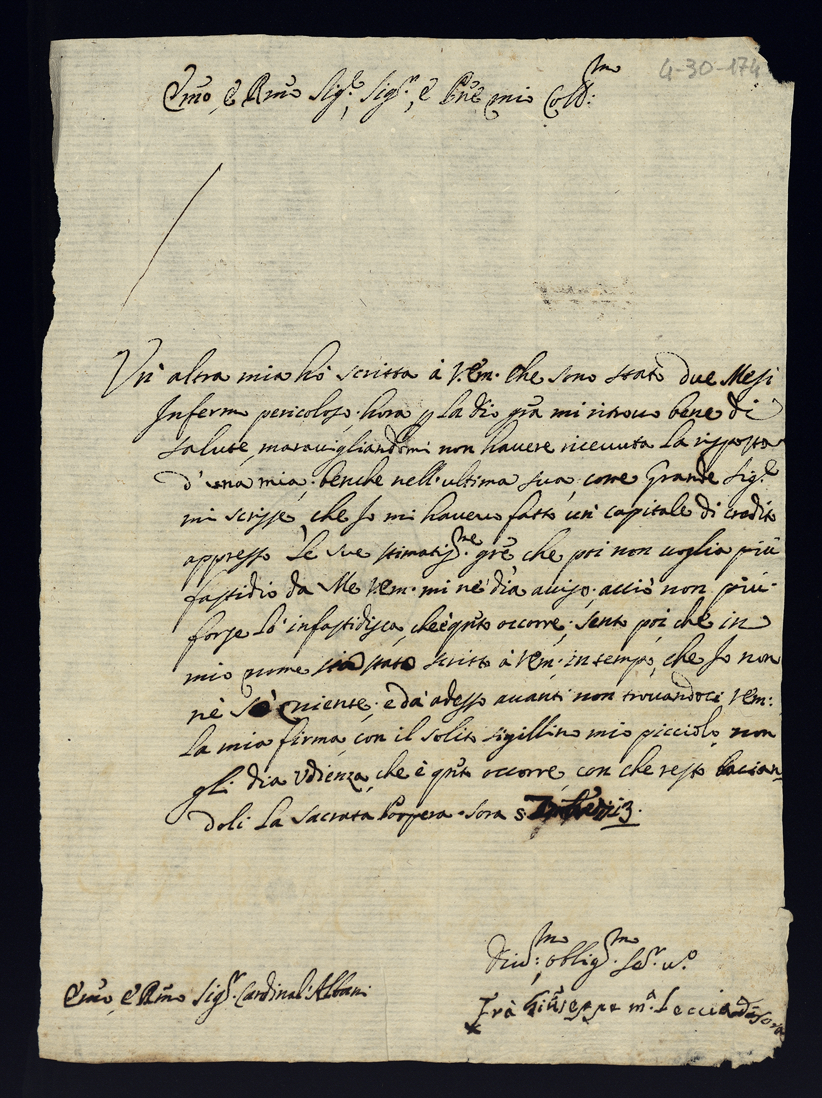 4-30-174
Em̃o, e Rm̃o Sig.r, Sig.r, e Pñe mio Coll:mo
Un' altra mia hò scritta à V.Em. che sono stato due Mesi
Infermo pericoloso. hora p la dio grã mi ritrovo bene di
salute, maravigliandomi non havere ricevuta la risposta
d' una mia. benche nell' ultima sua, come Grande Sig.re
mi scrisse, che Io mi havevo fatto un' capitale di credito
appresso le sue stimatis.me grẽ che poi non voglia più
fastidio da Me V.Em. mi ne dia aviso. acciò non più
forse lo infastidisca, che è q̃nto occorre. sento poi che in
mio nome sia stato scritto à V.Em. in tempo, che Io non
nè sò niente. e da adesso avanti non trovandoci V.Em:
la mia firma, con il solito sigillino mio picciolo, non
gli dia udienza, che è q̃nto occorre, con che resto bacian=
doli la Sacrata Porpora. Sora
Div:mo, oblig.mo Ser.r v.o
Em̃o, e Rm̃o Sig.r Cardinal: Albani
Frà Giuseppe m.a Leccia di Sora